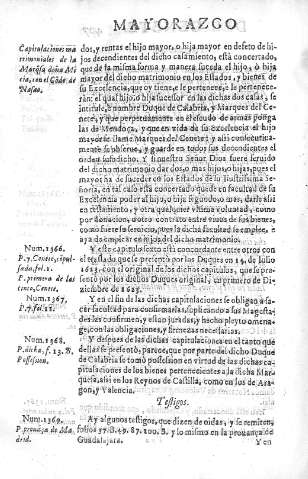 MAYORAZGO
Capitulaciones ma
trimoniales de la
Marqsa doña Ma
ria, con el Cōde de
Nasao.
dos, y rentas el hijo mayor, o hija mayor en defeto de hi-
jos decendientes del dicho casamiento, està concertado,
que de la misma forma y manera suceda el hijo, ò hija
mayor del dicho matrimonio en los Estados, y bienes de
su Excelencia, que oy tiene, e le pertenece, e le pertenece-
ran: el qual hijo, o hija sucessor en las dichas dos casas, se
intitule, e nombre Duque de Calabria, y Marques del Ce-
nete, y que perpetuamente en el escudo de armas ponga
las de Mendoça, y que en vida de su Excelencia el hijo
mayor se llame Marques del Cenete, y assi consecutiuamen-
te se obserue, y guarde en todos sus decendientes el
orden susodicho. Y si nuestro Señor Dios fuere seruido
del dicho matrimonio dar dos, o mas hijos, o hijas, pues el
mayor ha de suceder en los Estados de su Ilustrissima Se-
ñoria, en tal caso està concertado quede en facultad de su
Excelencia poder al hijo, o hija segundo, o mas, darlo assi
en testamento, y otra qualquier vltima voluntad, como
por donacion, o otro contrato entre viuos, o assi como
fuere su seruicio, que la dicha facultad se emplee, e
aya de emplear en hijos del dicho matrimonio.
Num. 1366.
P. 7. Cenete, capitul-
lado, fol. 1.
P. primera de las
cinco, Cenete.
Y este capitulo sexto està concordante entre otros con
el traslado que se presentò por los Duques en 14. de Iulio
de 1613. con el original de los dichos capitulos, que se pre-
sentò por los dichos Duques original, en primero de Di-
ziembre de 1625.
Num. 1367.
P. 7. fol. 12.
Y en el fin de las dichas capitulaciones se obligan a sa-
car facultad para confirmarlas, suplicando a sus Magesta-
des las confirmen, y ellos juran de y hecho pleyto omena-
ge, con las obligaciones, y firmezas necessarias.
Num. 1368.
P. dicha, f. 13. B.
Possession.
Y despues de las dichas capitulaciones en el tanto que
dellas se presentò, parece, que por parte del dicho Duque
de Calabria se tomò possession en virtud de las dichas ca-
pitulaciones de los bienes pertenecientes a la dicha Mar-
quesa, assi en los Reynos de Castilla, como en los de Ara-
gon, y Valencia.
Testigos.
Num. 1369.
P. prouãça de Ma
drid.
Ay algunos testigos, que dizen de oidas, y se remiten,
folios 37. B. 49. 87. 100. B. y lo mismo en la prouança de
Guadalajara.
Y en